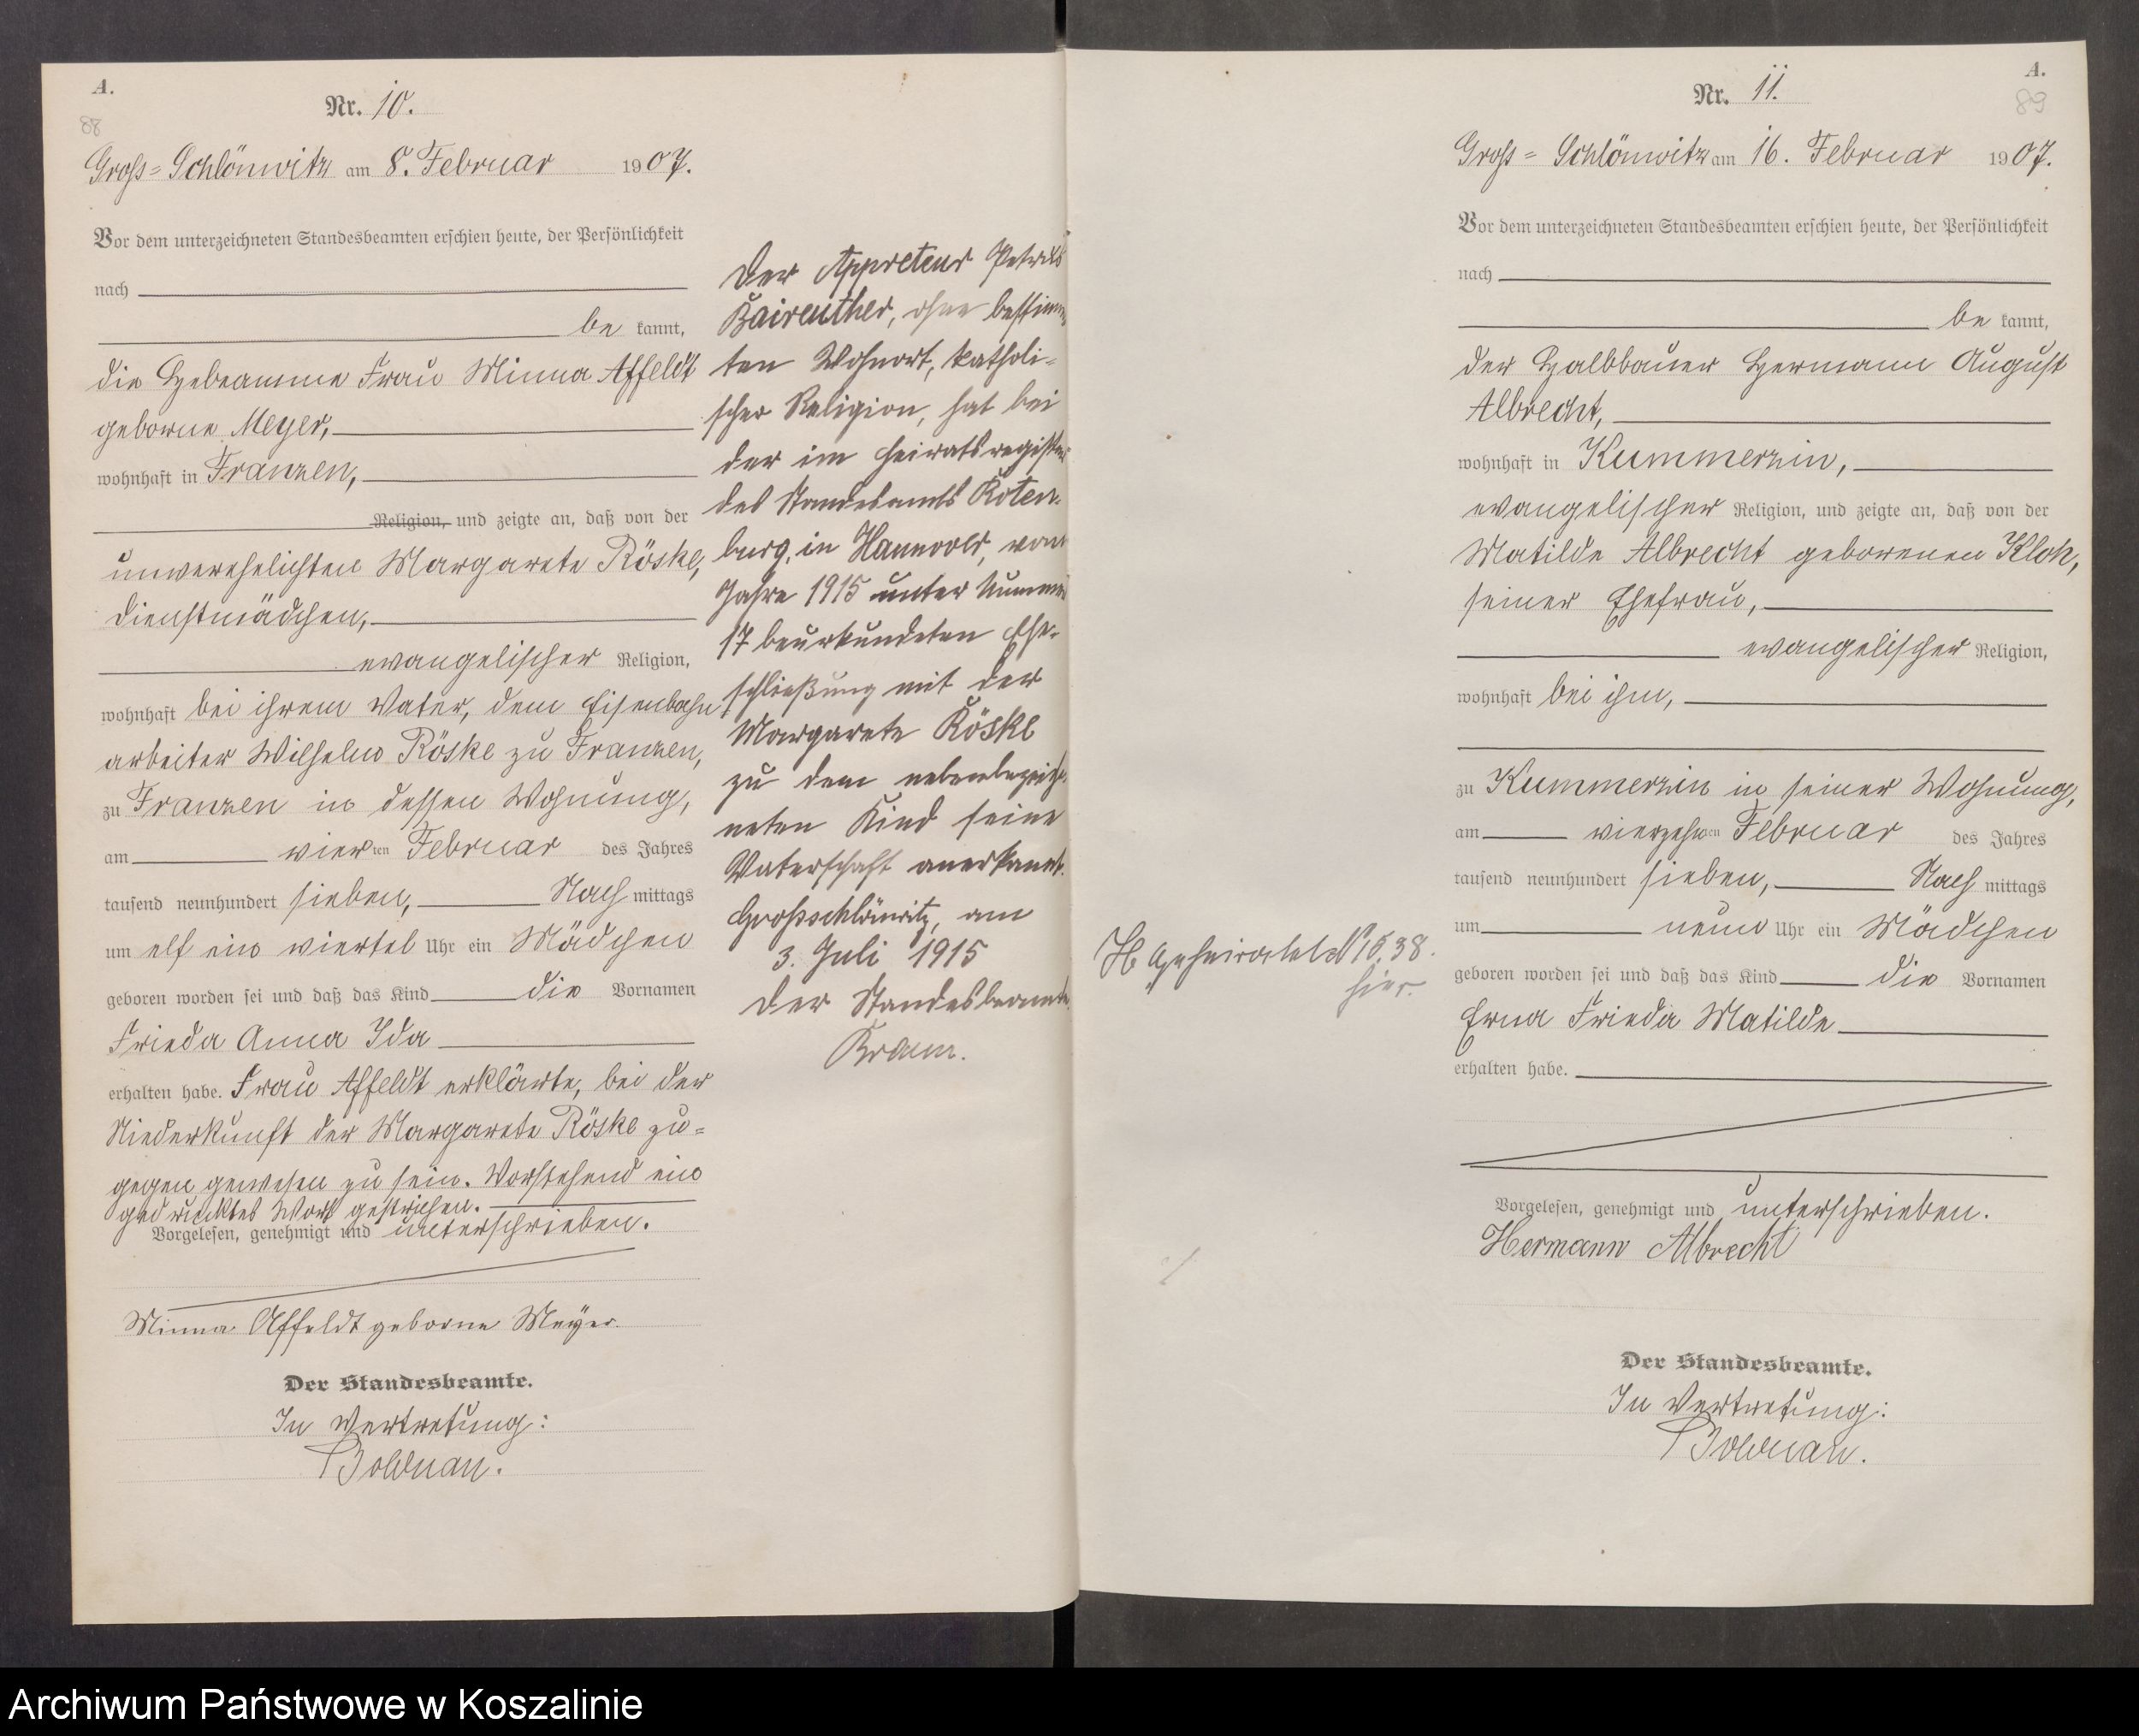 A.
88
Nr. 10.
Gross=Schlönwitz am 8. Februar 1907.
Vor dem unterzeichneten Standesbeamten erschien heute, der Persönlichkeit
nach
be kannt,
die Hebeamme Frau Minna Affeldt
geborne Meyer,
wohnhaft in Franzen,
Religion, und zeigte an, daß von der
unverehelichten Margarete Röske,
Dienstmädchen,
evangelischer Religion,
wohnhaft bei ihrem Vater, dem Eisenbahn
arbeiter Wilhelm Röske zu Franzen,
zu Franzen in dessen Wohnung,
am vierten Februar des Jahres
tausend neunhundert sieben, Nach mittags
um elf ein viertel Uhr ein Mädchen
geboren worden sei und daß das Kind die Vornamen
Frieda Anna Ida
erhalten habe. Frau Affeldt erklärte, bei der
Niederkunft der Margarete Röske zu=
gegen gewesen zu sein. Vorstehend ein
gedrucktes Wort gestrichen.
Vorgelesen, genehmigt und unterschrieben.
Minna Affeldt geborne Meyer.
Der Standesbeamte.
In Vertretung:
Bolduan.
Der Appreteur
Baireuther, ohne bestimm
ten Wohnort, katholi=
scher Religion, hat bei
der im Heiratsregister
des Standesamts Roten=
burg, in Hannover, vom
Jahre 1915 unter Nummer
17 beurkundeten Ehe=
schließung mit der
Margarete Röske
zu dem nebenbezeich=
neten Kind seine
Vaterschaft anerkannt.
Großschlönwitz, am
3. Juli 1915
Der Standesbeamte.
A.
89
Nr. 11.
Gross=Schlönwitz am 16. Februar 1907.
Vor dem unterzeichneten Standesbeamten erschien heute, der Persönlichkeit
nach
be kannt,
der Halbbauer Hermann August
Albrecht,
wohnhaft in Kummerzin,
evangelischer Religion, und zeigte an, daß von der
Matilde Albrecht geborenen Klok,
seiner Ehefrau,
evangelischer Religion,
wohnhaft bei ihm,
zu Kummerzin in seiner Wohnung,
am vierzehnten Februar des Jahres
tausend neunhundert sieben, Nach mittags
um neun Uhr ein Mädchen
geboren worden sei und daß das Kind die Vornamen
Erna Frieda Matilde
erhalten habe.
Vorgelesen, genehmigt und unterschrieben.
Hermann Albrecht
Der Standesbeamte.
In Vertretung:
Bolduan.
geheiratet
hier.
Archiwum Państwowe w Koszalinie